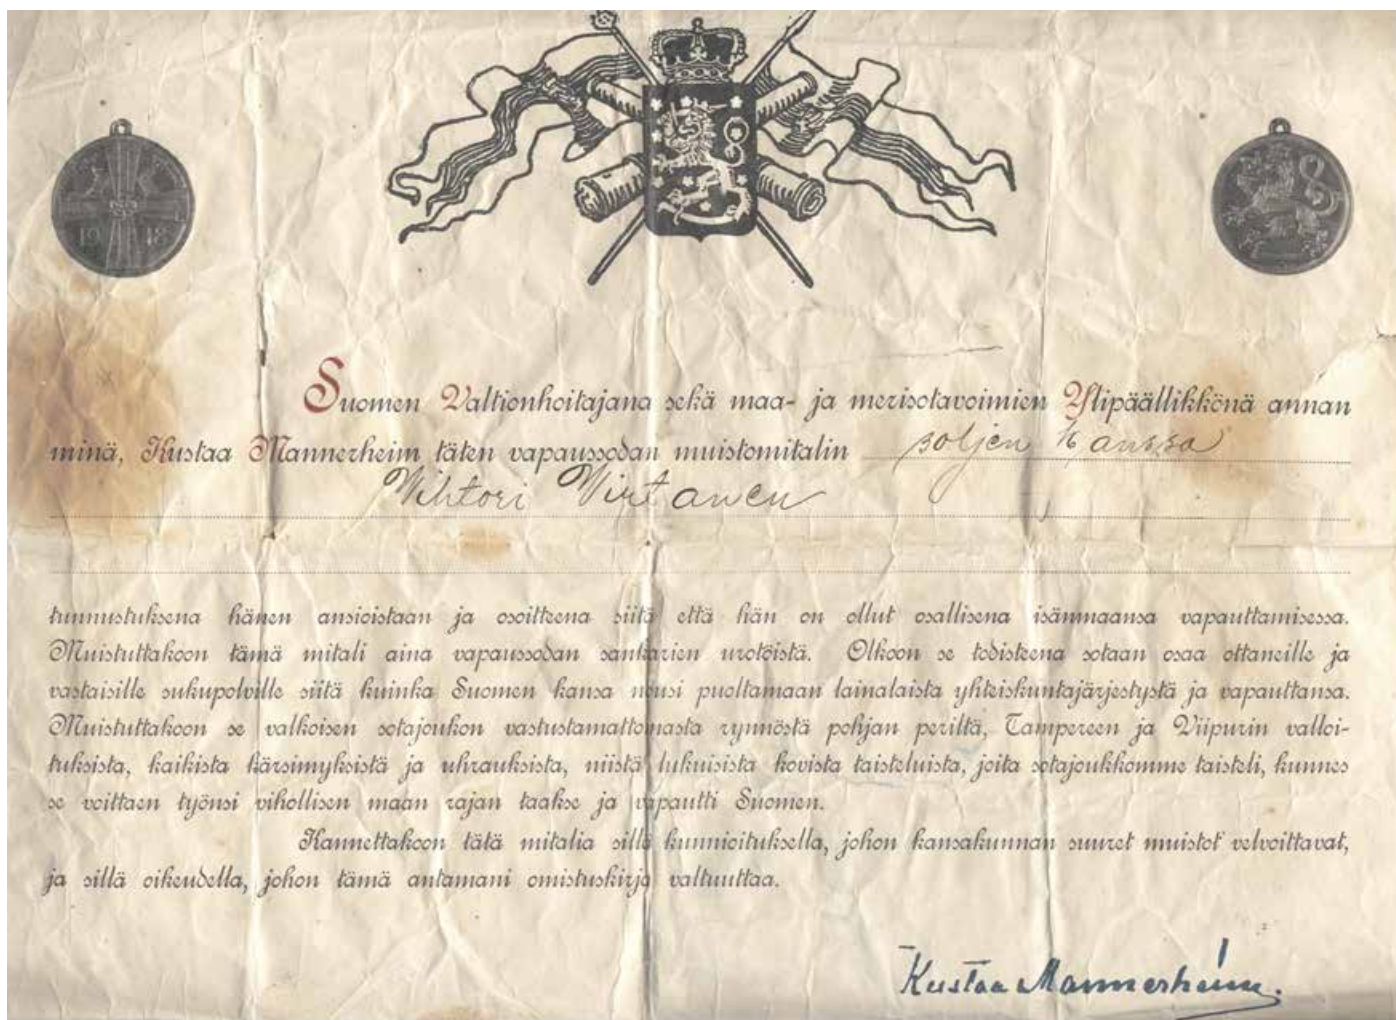 19 18
Suomen Valtionhoitajana sekä maa- ja merisotavoimien Ylipäällikkönä annan
minä, Kustaa Mannerheim täten vapaussodan muistomitalin soljen kanssa
Vihtori Virtanen
tunnustuksena hänen ansioistaan ja osoitteena siitä että hän on ollut osallisena isänmaansa vapauttamisessa.
Muistuttakoon tämä mitali aina vapaussodan sankarien urotöistä. Olkoon se todisteena sotaan osaa ottaneille ja
vastaisille sukupolville siitä kuinka Suomen kansa nousi puoltamaan lainalaista yhteiskuntajärjestystä ja vapauttansa.
Muistuttakoon se valkoisen sotajoukon vastustamattomasta rynnöstä pohjan periltä, Tampereen ja Viipurin valloi-
tuksista, kaikista kärsimyksistä ja uhrauksista, niistä lukuisista kovista taisteluista, joita sotajoukkomme taisteli, kunnes
se voittaen työnsi vihollisen maan rajan taakse ja vapautti Suomen.
Kannettakoon tätä mitalia sillä kunnioituksella, johon kansakunnan suuret muistot velvoittavat,
ja sillä oikeudella, johon tämä antamani omistuskirja valtuuttaa.
Kustaa Mannerheim.